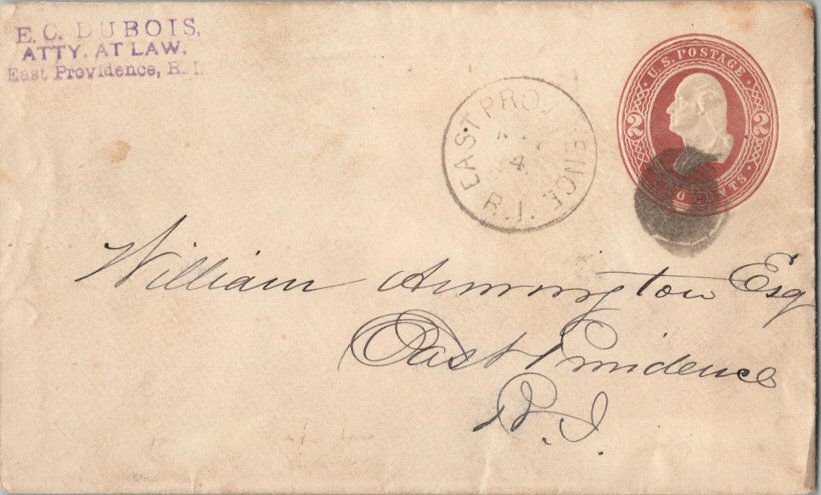 E. C. DUBOIS,
ATTY. AT LAW.
East Providence, R. I.
EAST PROVIDENCE
4
R.I.
U.S. POSTAGE
2 2
CENTS
William Armington Esq
East Providence
R. I.